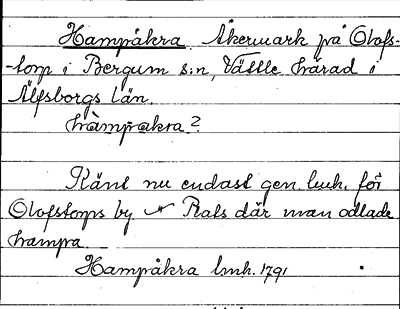 Hampåkra Åkermark på Olofs-
-torp i Bergum s:n, Vättle härad i
Älfsborgs Län.
hàmpakra?
Känt nu endast gen. lmh. för
Olofstorps by Plats där man odlade
hampa
Hampåkra lmh. 1791